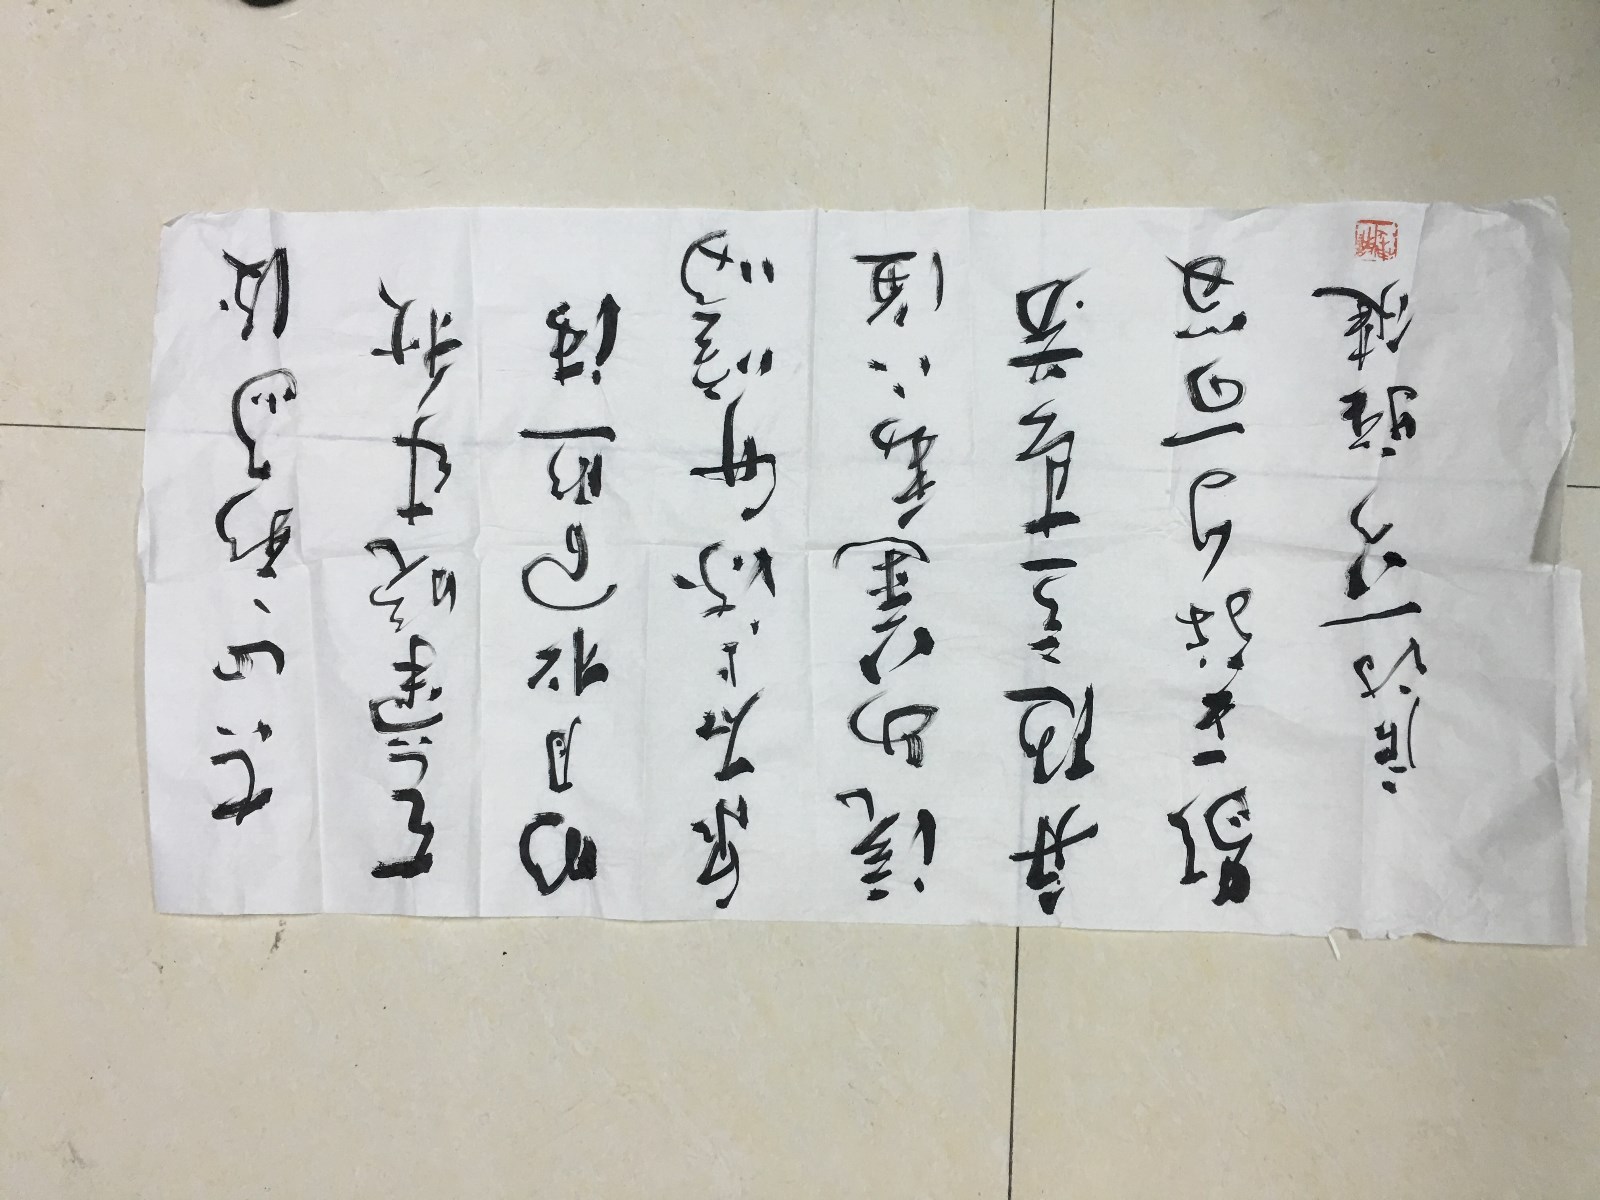 空山新雨後
天氣晚來秋
明月松間照清
泉石上流竹喧歸
浣女蓮動下漁
舟隨意春芳
歇王孫自可留
唐诗一首 雅健